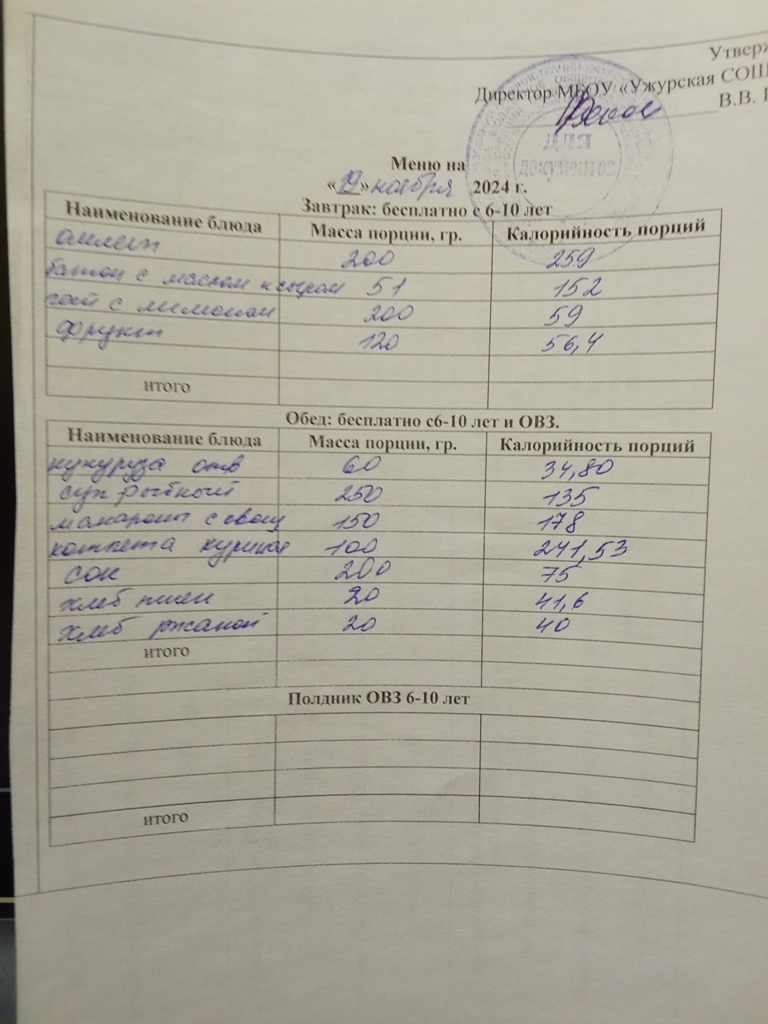 Утверж
Директор МБОУ «Ужурская СОШ
В.В.
ДЛЯ
ДОКУМЕНТОВ
Меню на
«19» ноября 2024 г.
Завтрак: бесплатно с 6-10 лет
Наименование блюда Масса порции, гр. Калорийность порций
омлет 200 259
батон с маслом и сыром 51 152
чай с лимоном 200 59
фрукт 120 56,4
итого
Обед: бесплатно с6-10 лет и ОВЗ.
Наименование блюда Масса порции, гр. Калорийность порций
кукуруза отв 60 34,80
суп рыбный 250 135
макароны с овощ 150 178
котлета куриная 100 241,53
сок 200 75
хлеб пшен 20 41,6
хлеб ржаной 20 40
итого
Полдник ОВЗ 6-10 лет
итого